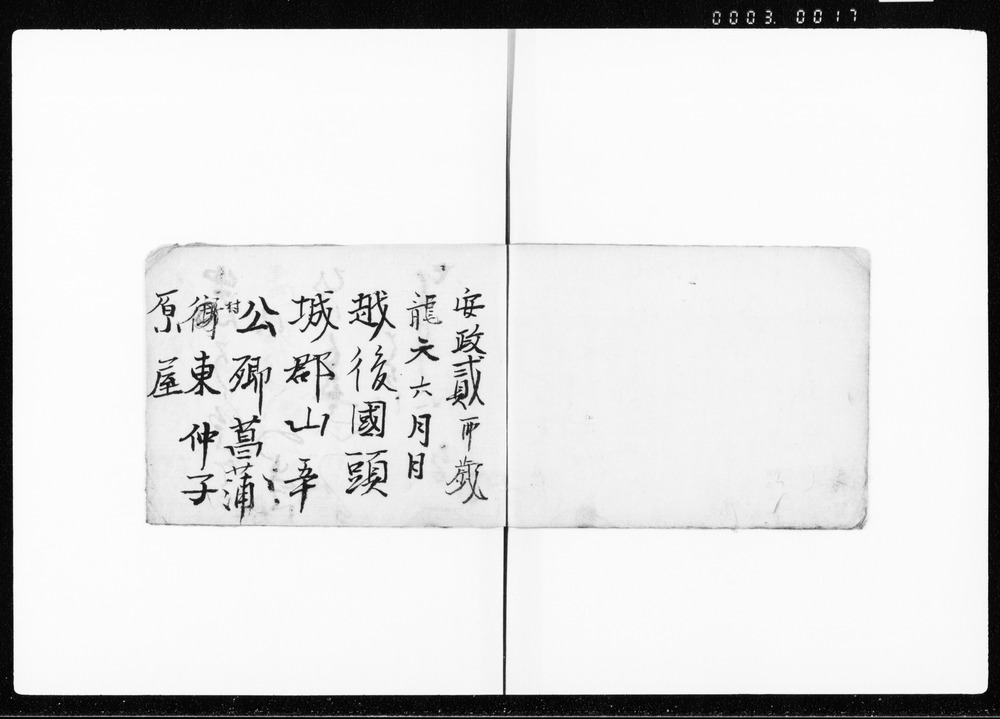 0003.0017
安政貳
龍天六月日
越後國頸
城郡山幸
公卿菖蒲
村
東仲子
原屋